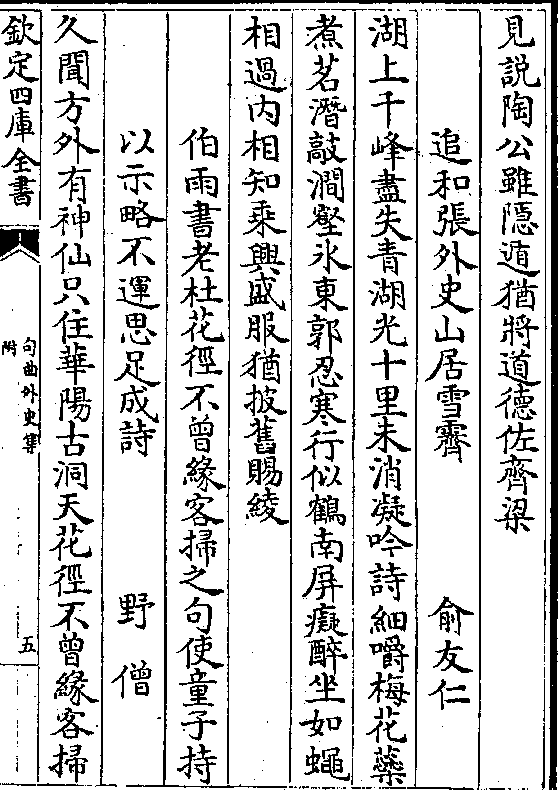 見説陶公雖隠遁猶將道德佐齊梁
追和張外史山居雪霽　俞友仁
湖上千峰盡失青湖光十里未消凝吟詩細嚼梅花蘂
煮茗潛敲澗壑氷東郭忍寒行似鶴南屏癡醉坐如蠅
相過内相知乘興盛服猶披舊賜綾
伯雨書老杜花徑不曾緣客掃之句使童子持
以示略不運思足成詩　野僧
久聞方外有神仙只住華陽古洞天花徑不曾緣客掃
欽定四庫全書
句曲外史集
附
五